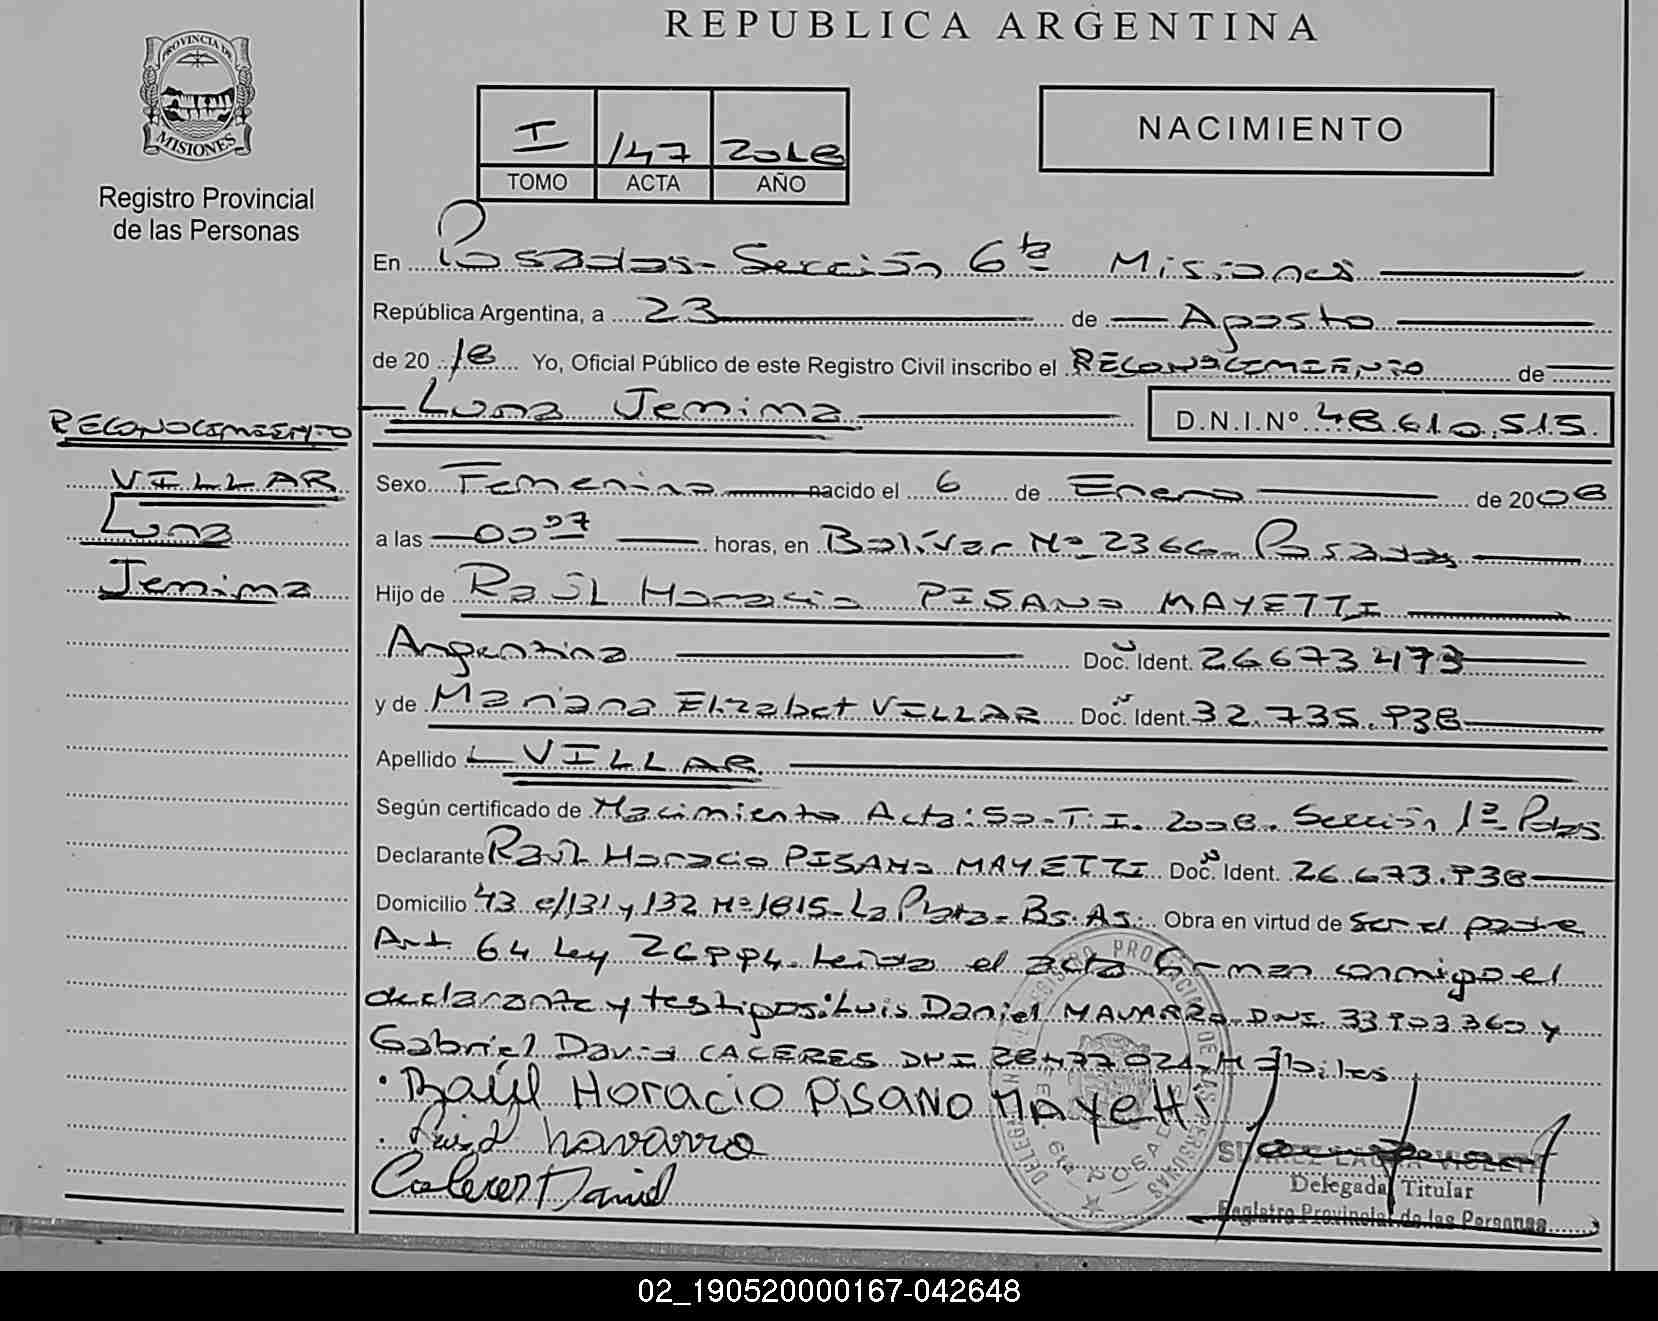 REPUBLICA ARGENTINA
PROVINCIA DE
MISIONES
Registro Provincial
de las Personas
I 147 2018
TOMO ACTA AÑO
NACIMIENTO
En Posadas- Sección 6ta Misiones
República Argentina, a 23 de Agosto
de 2018 Yo, Oficial Público de este Registro Civil inscribo el RECONOCIMIENTO de
Luna Jemima D.N.I.Nº 48.610.515.
RECONOCIMIENTO
VILLAR
Luna
Jemima
Sexo Femenino nacido el 6 de Enero de 2008
a las 00 07 horas, en Bolívar Nº 2366- Posadas
Hijo de Raúl Horacio PISANO MAYETTI
Argentina Doc. Ident. 26673473
y de Mariana Elizabet VILLAR Doc. Ident. 32.735.938
Apellido VILLAR
Según certificado de Nacimiento Acta: 50-T.I. 2008. Sección 1ª Pdas
Declarante Raúl Horacio PISANO MAYETTI Doc. Ident. 26.673.938
Domicilio 43 e/131 y 132 Nº 1815- La Plata- Bs.As. Obra en virtud de ser el padre
Art. 64 Ley 26994. Leida el acta firman conmigo el
declarante y testigos: Luis Daniel NAVARRO DNI 33.903.360 y
Gabriel David CACERES DNI 28.477.021- Hábiles
Raúl Horacio Pisano Mayetti
Navarro
Caceres David
REGISTRO PROVINCIAL DE LAS PERSONAS
DELEGACION 6ta POSADAS
Delegada Titular
Registro Provincial de las Personas
02_190520000167-042648